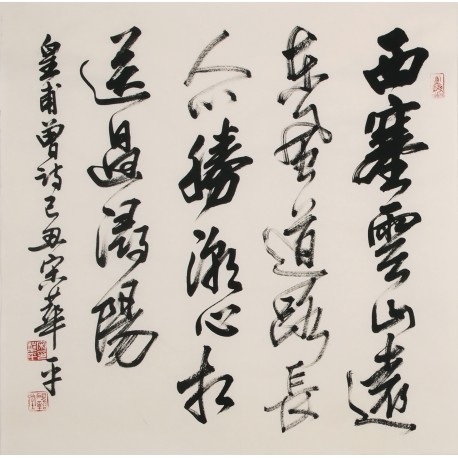 西塞雲山遠
東風道路長
人心勝潮水相
送過潯陽
皇甫曾詩己丑宋華平